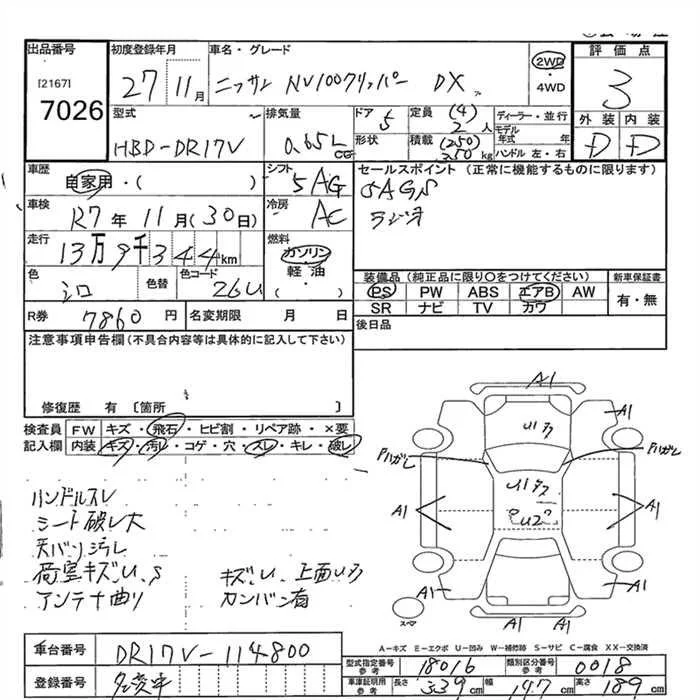 出品番号
[2167]
7026
初度登録年月
27年 11月
車名・グレード
ニッサン NV100クリッパー DX
2WD
・4WD
評価点
3
外装 内装
D D
型式
HBD-DR17V
排気量
0.65L
CC
ドア 5
形状
定員 (4) 2 人
積載 (250) 350 kg
ディーラー・並行
モデル年式 年
ハンドル 左・右
車歴
自家用・( )
車検
R7年 11月(30日)
走行
13万9千344km
色
シロ
色替
色コード
26U
シフト
5AG
冷房
AC
燃料
ガソリン
・
軽油
( )
セールスポイント (正常に機能するものに限ります)
5AGS
ラジオ
装備品(純正品に限り〇をつけてください)
PS PW ABS エアB AW
SR ナビ TV カワ
新車保証書
有・無
後日品
R券 7860円
名変期限 月 日
注意事項申告欄(不具合内容等は具体的に記入して下さい)
修復歴 有 〔箇所 〕
検査員 FW キズ・飛石・ヒビ割・リペア跡・×要
記入欄 内装 キズ・汚れ・コゲ・穴・スレ・キレ・破レ
ハンドルスレ
シート破レ大
天バリ汚レ
荷室キズU、S キズU、上面Uタ
アンテナ曲り カンバン有
A1
Uタ
A1
Pハガレ
Pハガレ
Uタ
U2
A1
A1
A1
A1
A1
スペア
A-キズ E-エクボ U-凹み W-補修跡 S-サビ C-腐食 XX-交換済
車台番号 DR17V-114800
登録番号 名変車
型式指定番号 参考 18016
類別区分番号 参考 0018
車庫証明用 参考 長さ 339 cm 幅 147 cm 高さ 189 cm